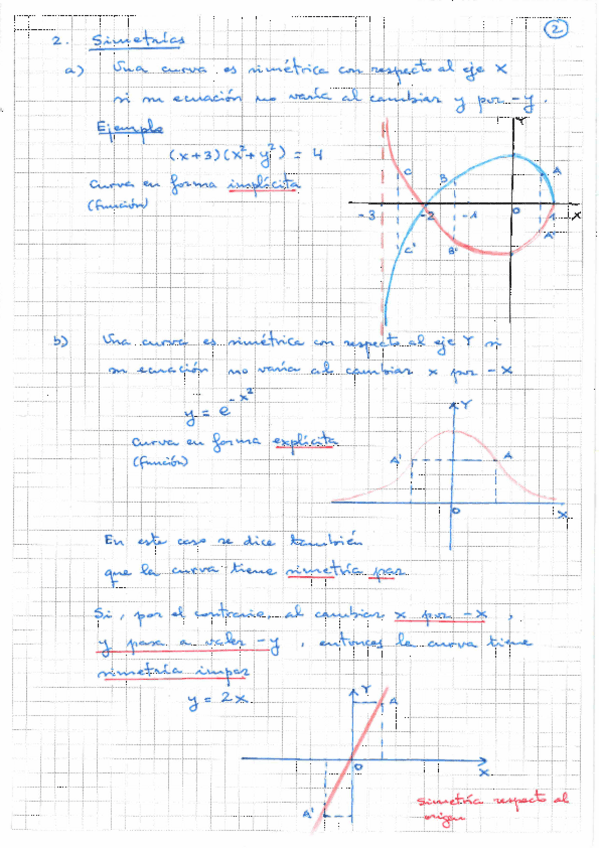 2
2. Simetrías
a) Una curva es simétrica con respecto al eje X
si su ecuación no varía al cambiar y por -y.
Ejemplo
(x+3)(x²+y²) = 4
Curva en forma implícita
(función)
Y
C B A
-3 -2 -1 0 1 X
C' B' A'
b) Una curva es simétrica con respecto al eje Y si
su ecuación no varía al cambiar x por -x
y = e^-x²
Curva en forma explícita
(función)
Y
A' A
0 X
En este caso se dice también
que la curva tiene simetría par
Si, por el contrario, al cambiar x por -x,
y pasa a valer -y, entonces la curva tiene
simetría impar
y = 2x
Y
A
0
X
A'
Simetría respecto al
origen